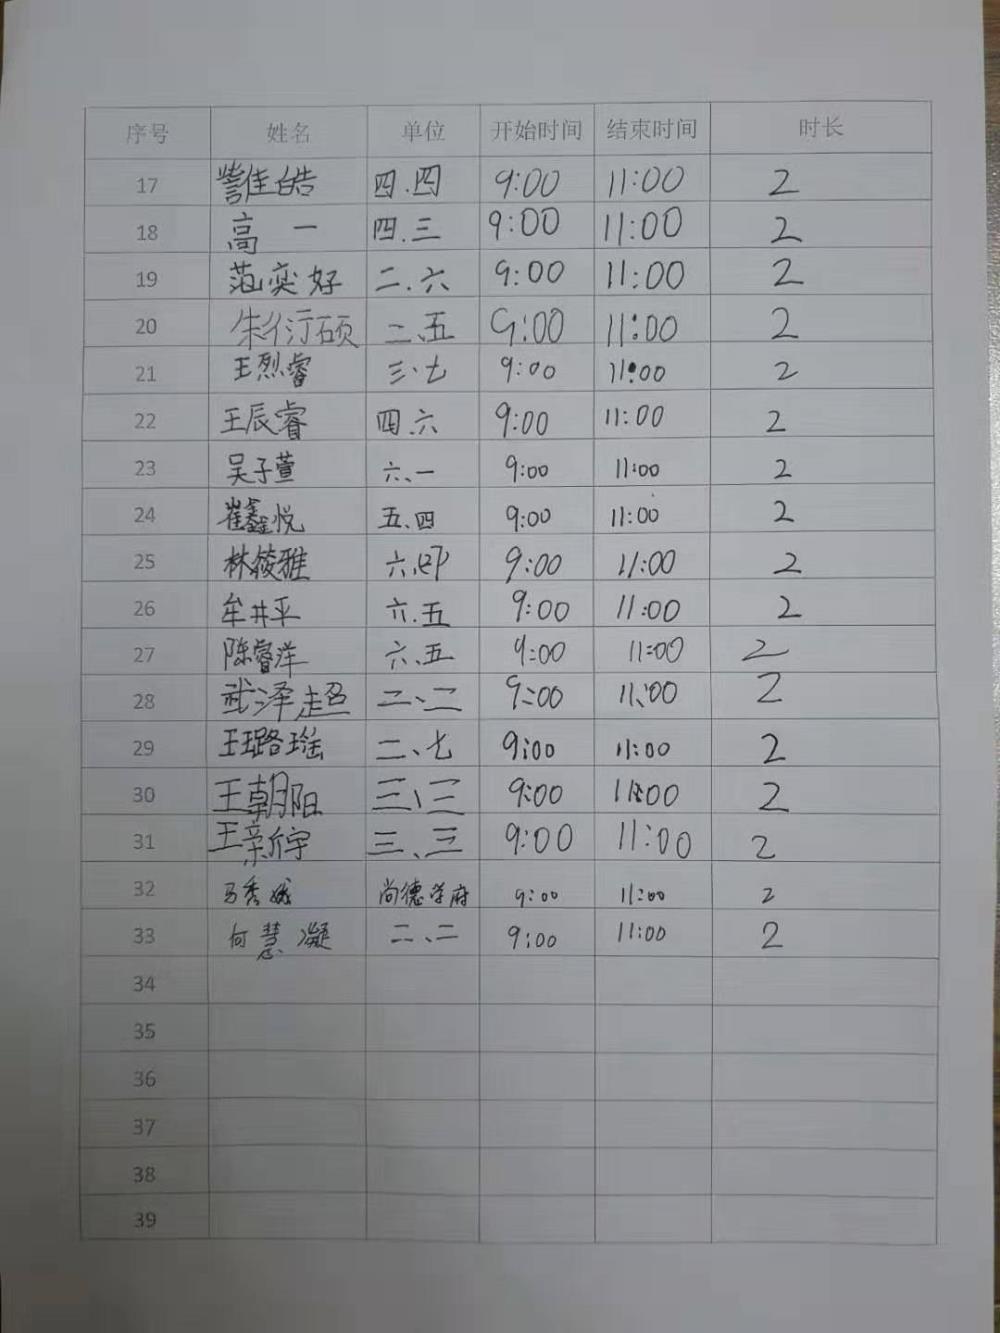 序号 姓名 单位 开始时间 结束时间 时长
17 佳皓 四.四 9:00 11:00 2
18 高一 四.三 9:00 11:00 2
19 范奕好 二.六 9:00 11:00 2
20 朱衍硕 二.五 9:00 11:00 2
21 王烈睿 三.七 9:00 11:00 2
22 王辰睿 四.六 9:00 11:00 2
23 吴子萱 六.一 9:00 11:00 2
24 崔鑫悦 五.四 9:00 11:00 2
25 林绫雅 六.四 9:00 11:00 2
26 牟井平 六.五 9:00 11:00 2
27 陈睿洋 六.五 9:00 11:00 2
28 武泽超 二、二 9:00 11:00 2
29 王璐瑶 二、七 9:00 11:00 2
30 王朝阳 三、三 9:00 11:00 2
31 王新宇 三、三 9:00 11:00 2
32 马秀娥 尚德学府 9:00 11:00 2
33 何慧凝 二、二 9:00 11:00 2
34
35
36
37
38
39